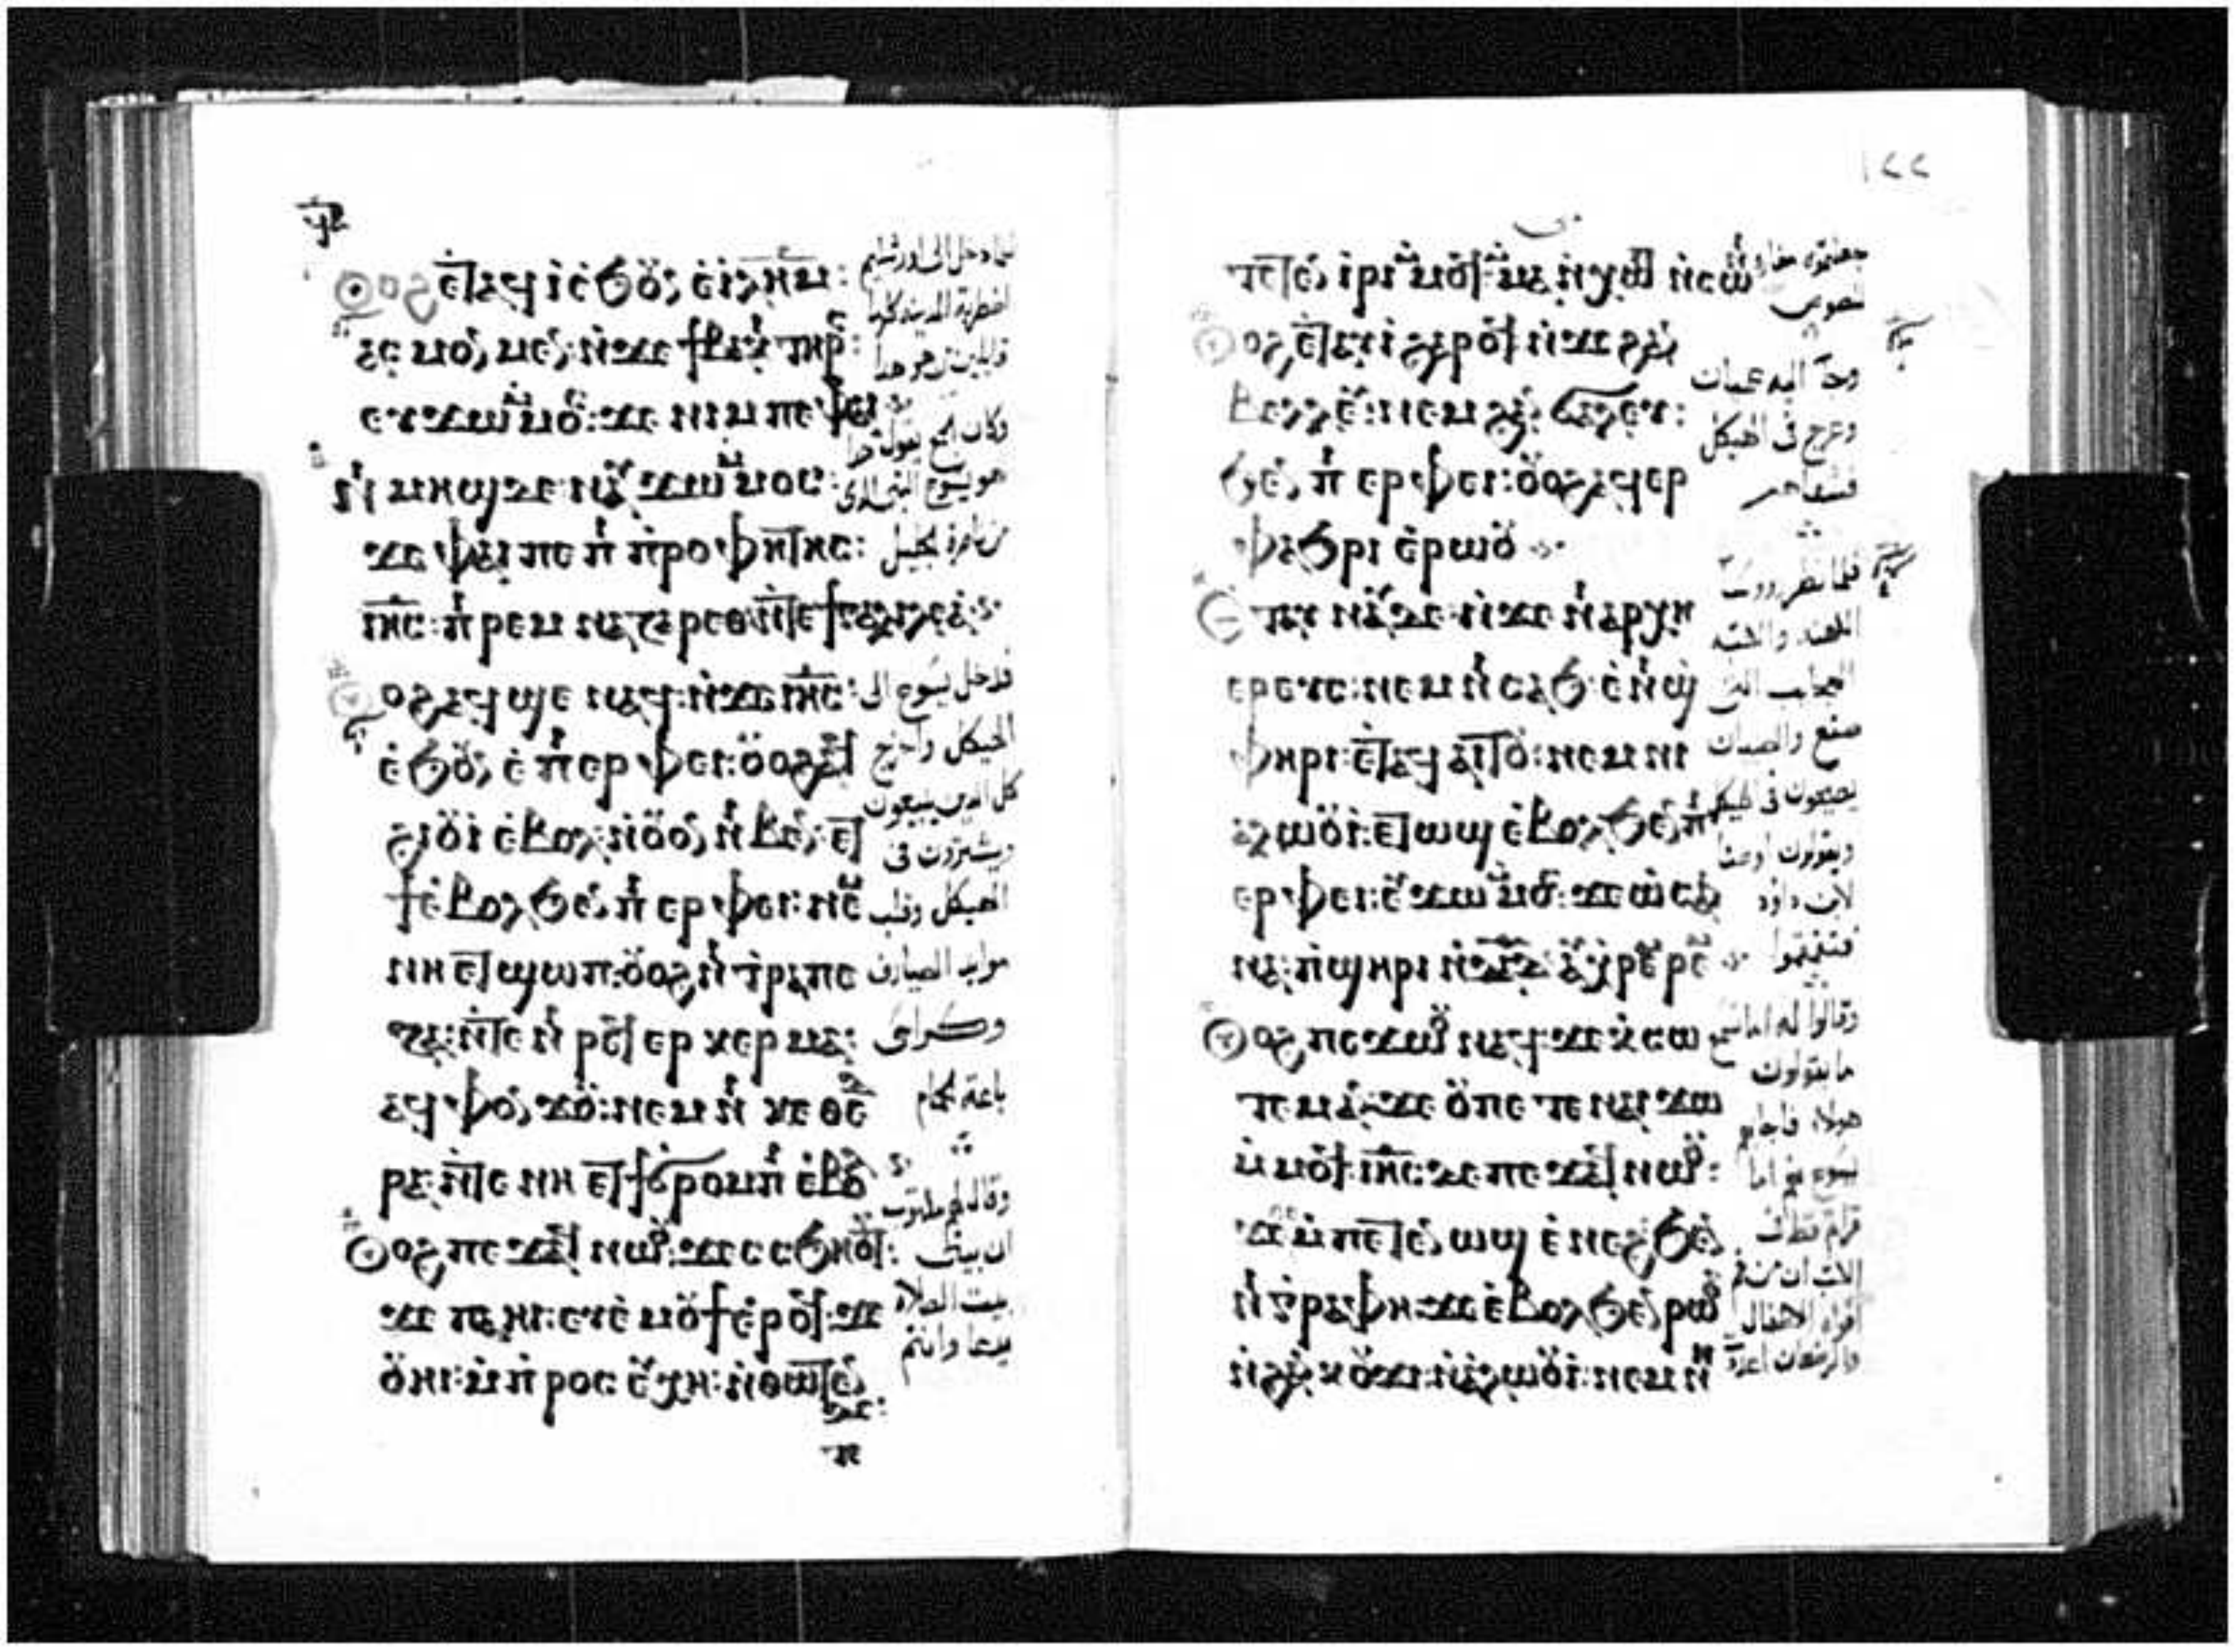 ⲟⲩⲟϩ ⲉⲧⲁϥⲓ ⲉϧⲟⲩⲛ ⲉⲓⲗⲏⲙ:
ⲁⲥⲙⲟⲛⲙⲉⲛ ⲛϫⲉ ϯⲃⲁⲕⲓ ⲧⲏⲣⲥ:
ⲉⲩϫⲱ ⲙⲙⲟⲥ: ϫⲉ ⲛⲓⲙ ⲡⲉ ⲫⲁⲓ
ⲛⲓⲙⲏϣ ⲇⲉ ⲛⲁⲩϫⲱ ⲙⲙⲟⲥ:
ϫⲉ ⲫⲁⲓ ⲡⲉ ⲡⲓⲡⲣⲟⲫⲏⲧⲏⲥ:
ⲓⲏⲥ: ⲡⲓⲣⲉⲙ ⲛⲁⲍⲁⲣⲉⲑ ⲛⲧⲉ ϯⲅⲁⲗⲓⲗⲉⲁ
ⲟⲩⲟϩ ⲁϥϣⲉ ⲛⲁϥ: ⲛϫⲉ ⲓⲏⲥ:
ⲉϧⲟⲩⲛ ⲉⲡⲓⲉⲣⲫⲉⲓ: ⲟⲩⲟϩ ⲁϥ
ϩⲓⲟⲩⲓ ⲉⲃⲟⲗ: ⲛⲟⲩⲟⲛ ⲛⲓⲃⲉⲛ: ⲉⲧ
ϯ ⲉⲃⲟⲗ ϧⲉⲛ ⲡⲓⲉⲣⲫⲉⲓ: ⲛⲉⲙ
ⲛⲏ ⲉⲧϣⲱⲡ: ⲟⲩⲟϩ ⲛⲓⲧⲣⲁⲡⲉ
ⲍⲁ: ⲛⲧⲉ ⲛⲓⲣⲉϥⲉⲣⲕⲉⲣⲙⲁ:
ⲁϥⲫⲟⲛϫⲟⲩ: ⲛⲉⲙ ⲛⲓⲕⲁⲑⲉⲇ
ⲣⲁ: ⲛⲧⲉ ⲛⲏ ⲉⲧϯ ϭⲣⲟⲙⲡⲓ ⲉⲃⲟⲗ
ⲟⲩⲟϩ ⲡⲉϫⲁϥ ⲛⲱⲟⲩ: ϫⲉ ⲥⲥϧⲏⲟⲩⲧ:
ϫⲉ ⲡⲁⲏⲓ: ⲉⲩⲉⲙⲟⲩϯ ⲉⲣⲟϥ: ϫⲉ
ⲟⲩⲏⲓ: ⲙⲡⲣⲟⲥⲉⲩⲭⲏ: ⲛⲑⲱⲧⲉⲛ
ⲇⲉ:
فلما دخل الى اورشليم
اضطربة المدينه كلها
قايلين من هو هدا
وكان الجمع يقول هدا
هو يسوع النبى الدى
من ناصرة الجليل
فدخل يسوع الى
الهيكل واخرج
كل الدين يبيعون
ويشترون فى
الهيكل وقلب
موايد الصيارف
وكراسى
باعة الحمام
وقال لهم مكتوب
ان بيتى
بيت الصلاه
يدعا وانتم
١٢٢
ⲧⲉⲧⲉⲛⲓⲣⲓ ⲙⲙⲟϥ: ⲙⲙⲁⲛⲭⲱⲡ ⲛⲥⲟⲛⲓ
ⲟⲩⲟϩ ⲉⲧⲁⲩⲓ ϩⲁⲣⲟϥ ⲛϫⲉ ϩⲁⲛ
ⲃⲉⲗⲗⲉⲩ: ⲛⲉⲙ ϩⲁⲛϭⲁⲗⲉⲩ:
ϧⲉⲛ ⲡⲓⲉⲣⲫⲉⲓ: ⲟⲩⲟϩ ⲁϥⲉⲣ
ⲫⲁϧⲣⲓ ⲉⲣⲱⲟⲩ
ⲉⲧⲁⲩⲛⲁⲩ ⲇⲉ ⲛϫⲉ ⲛⲓⲁⲣⲭⲏ
ⲉⲣⲉⲩⲥ: ⲛⲉⲙ ⲛⲓⲥⲁϧ ⲉⲛⲓϣ
ⲫⲏⲣⲓ: ⲉⲧⲁϥⲁⲓⲧⲟⲩ: ⲛⲉⲙ ⲛⲓ
ⲁⲗⲱⲟⲩⲓ: ⲉⲧⲱϣ ⲉⲃⲟⲗ ϧⲉⲛ ⲡⲓ
ⲉⲣⲫⲉⲓ: ⲉⲩϫⲱ ⲙⲙⲟⲥ: ϫⲉ ⲱⲥⲁⲛ
ⲛⲁ: ⲡϣⲏⲣⲓ ⲛⲇⲁⲇ: ⲁⲩⲭⲣⲉⲙⲣⲉⲙ
ⲟⲩⲟϩ ⲡⲉϫⲱⲟⲩ ⲛⲁϥ: ϫⲉ ⲕⲥⲱ
ⲧⲉⲙ ⲁⲛ: ϫⲉ ⲟⲩ ⲡⲉⲧⲉ ⲛⲁⲓ ϫⲱ
ⲙⲙⲟϥ: ⲓⲏⲥ ⲇⲉ ⲡⲉϫⲁϥ ⲛⲱⲟⲩ:
ϫⲉ ⲙⲡⲉⲧⲉⲛⲱϣ ⲉⲛⲉϩ ϧⲉⲛ
ⲛⲓⲅⲣⲁⲫⲏ: ϫⲉ ⲉⲃⲟⲗ ϧⲉⲛ ⲣⲱⲟⲩ
ⲛϩⲁⲛⲕⲟⲩϫⲓ: ⲛⲁⲗⲱⲟⲩⲓ: ⲛⲉⲙ ⲛⲏ
جعلتموه مغارة
لصوص
وجآ اليه عميان
وعرج فى الهيكل
فشفاهم
فلما نظر روسآ
الكهنه والكتبه
العجايب التى
صنع والصبيان
يصيحون فى الهيكل
ويقولون اوصنا
لابن داود
فتقمقموا
وقالوا له اما تسمع
ما يقولون
هولاء فاجابهم
يسوع نعم اما
قراتم قط فى
الكتب ان من فم
افواه الاطفال
والرضعان اعددت